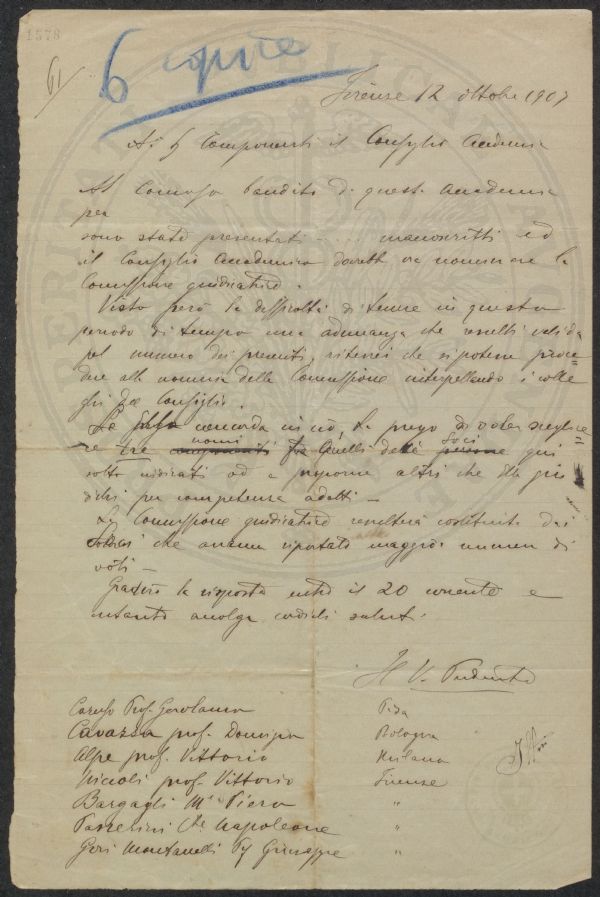 1578
61/
6 copie
Firenze 12 ottobre 1907
Ai Sigg. Componenti il Consiglio Accademico
Al Concorso bandito da questa Accademia
per
sono stati presentati - ... manoscritti ed
il Consiglio Accademico dovrebbe ora nominare la
Commissione giudicatrice.
Visto però la difficoltà di tenere in questo
periodo di tempo una adunanza che resulti valida
pel numero dei presenti, riterrei che si potesse proce=
dere alla nomina della Commissione interpellando i colle
ghi del Consiglio.
Se Ella concorda in ciò, La prego di voler sceglie=
re tre componenti nomi fra quelli delle persone Soci qui
sotto indicati od a proporne altri che Ella giu
dichi per competenza adatti -
La Commissione giudicatrice resulterà costituita dai
che avranno riportato maggior numero di
voti -
Gradirò la risposta entro il 20 corrente e
intanto accolga cordiali saluti.
Il V. Presidente
Caruso Prof. Gerolamo Pisa
Cavazza prof. Domizio Bologna
Alpe prof. Vittorio Milano
Niccoli prof. Vittorio Firenze
Bargagli Mse Piero "
Passerini Napoleone "
Gori Montanelli Giuseppe "